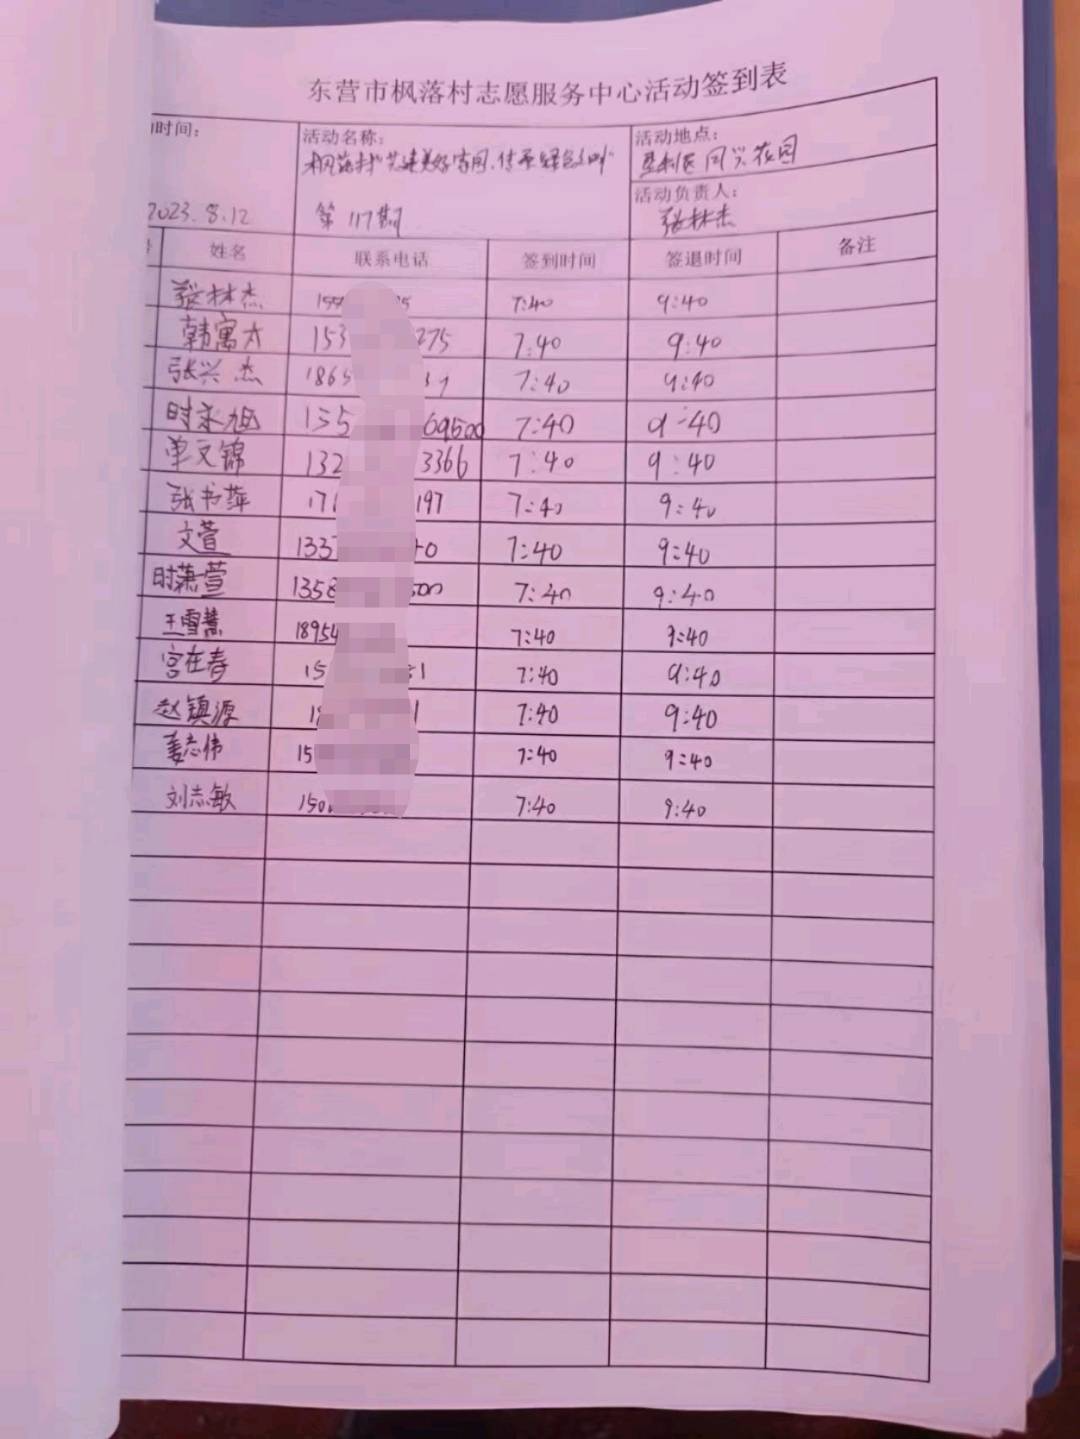 东营市枫落村志愿服务中心活动签到表
时间: 活动名称: 活动地点:
枫落村"共建美好家园,传承绿色 同兴花园
活动负责人:
2023.8.12 第117期 张林杰
姓名 联系电话 签到时间 签退时间 备注
张林杰 7:40 9:40
韩寓才 153 275 7:40 9:40
张兴杰 1865 7:40 9:40
时永旭 135 69500 7:40 9:40
单文锦 132 3366 7:40 9:40
张书萍 171 197 7:40 9:40
文萱 1337 40 7:40 9:40
时萧萱 1358 500 7:40 9:40
王雪慧 18954 7:40 9:40
宫在春 15 1 7:40 9:40
赵镇源 1 7:40 9:40
姜志伟 15 7:40 9:40
刘志敏 150 7:40 9:40